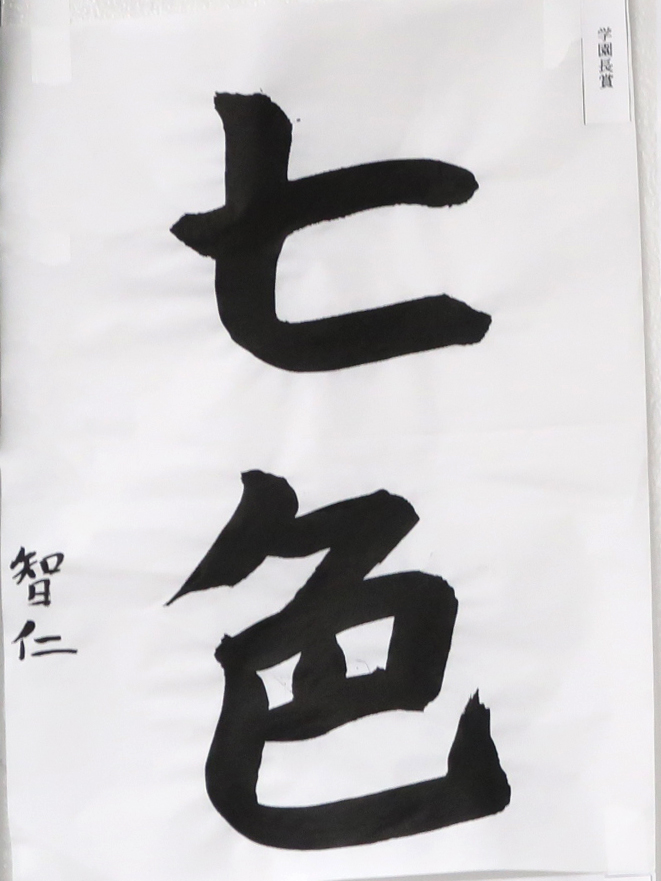 学園長賞
七色
智仁